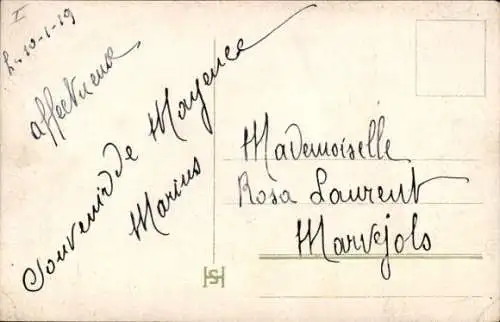 I
le 10-1-19
affectueux
Souvenir de Mayence
Marius
Mademoiselle
Rosa Laurent
Marvejols
HS